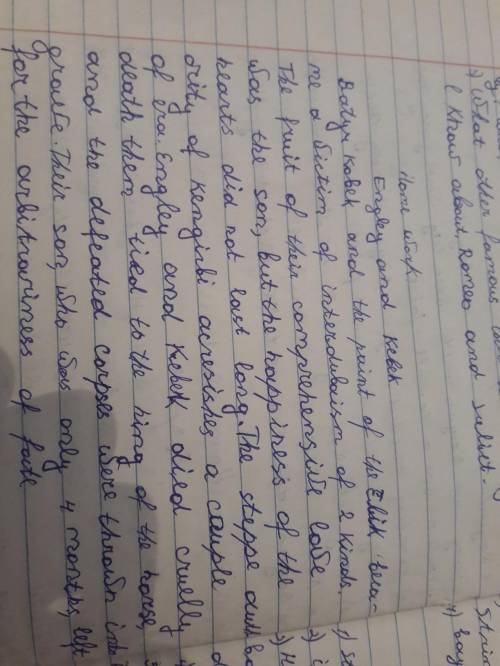 3) What other famous
I know about Romeo and Juliet.
Home work
Engley and Kebek
Batyr Kobek and the print of the Enlik beca-
me a victim of interdubaism of 2 kinds,
The fruit of their comprehensive love
was the son, but the happiness of the
hearts did not last long. The steppe auth
ority of Kengirbi acresishes a couple
of era. Engley and Kebek died cruelly
death them tied to the hing of the horse,
and the defeated corpses were thrown into
grave. Their son, who was only 4 months, left
for the arbitrariness of fate